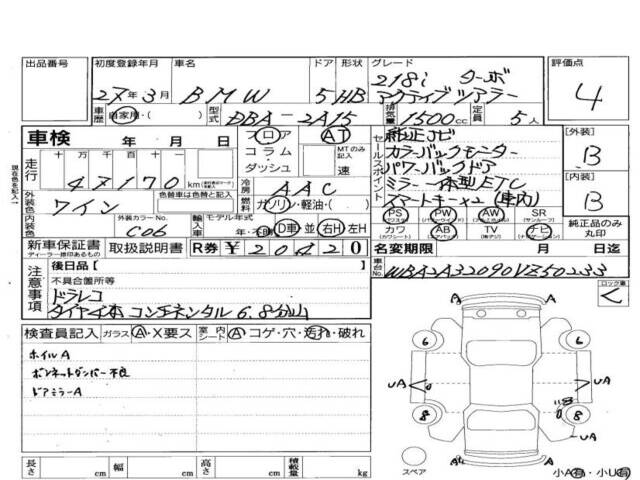 出品番号 初度登録年月 車名 ドア 形状 グレード 評価点
27年3月 BMW 5 HB 218i ターボ アクティブツアラー 4
車歴 自家用・( ) 型式 DBA-2A15 排気量 1500cc 定員 5人
車検 年 月 日 フロア AT
コラム・ダッシュ MTのみ記入 速
現在色を記入
走行 十万千百十 47170km
冷房 AAC
外装色 ワイン 色替車は色替と記入
燃料 ガソリン・軽油・( )
内装色 外装カラーNo. C06 輸入車 モデル年式 年・不明 D車・並 右H・左H
セールスポイント
純正ナビ
カラーバックモニター
パワーバックドア
ミラー一体型ETC
スマートキー×2(車内)
PS PW AW SR(サンルーフ)
カワ(カワシート) AB(エアバッグ) TV ナビ
[外装] B
[内装] B
純正品のみ丸印
新車保証書 ディーラー捺印あるもの 取扱説明書 R券 ¥20420
名変期限 月 日迄
車台No. WBA2A32090VZ50233
注意事項
後日品[ ]
不具合箇所等
ドラレコ
タイヤ4本コンチネンタル6.8分山
ロック車
検査員記入 ガラス A・X要ス 室内シート A コゲ・穴・汚れ・破れ
ホイルA
ボンネットダンパー不良
ドアミラーA
A A
6 6
UA UA
8 8
UA
スペア A A
小A有・小U有
長さ cm 幅 cm 高さ cm 積載量 kg